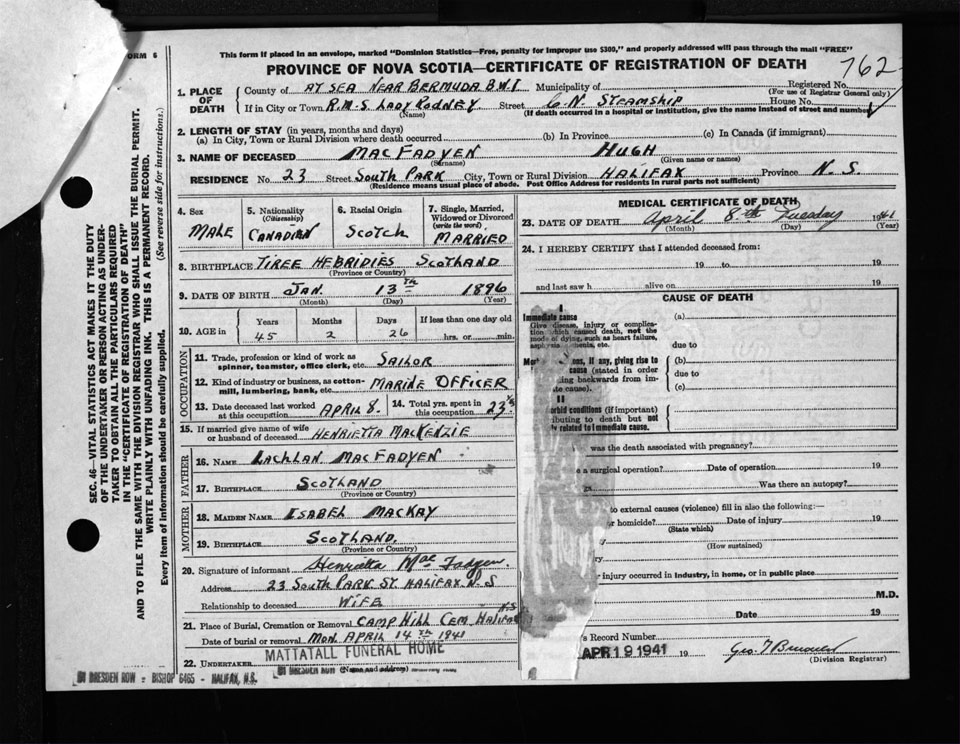 ORM 6
This form if placed in an envelope, marked "Dominion Statistics—Free, penalty for improper use $300," and properly addressed will pass through the mail "FREE"
PROVINCE OF NOVA SCOTIA—CERTIFICATE OF REGISTRATION OF DEATH
762
1. PLACE OF DEATH
County of AT SEA NEAR BERMUDA B.W.I Municipality of Registered No.
(For use of Registrar General only)
If in City or Town R.M.S. LADY RODNEY Street C.N. STEAMSHIP House No.
(Name) (If death occurred in a hospital or institution, give the name instead of street and number)
2. LENGTH OF STAY (in years, months and days)
(a) In City, Town or Rural Division where death occurred (b) In Province (c) In Canada (if immigrant)
3. NAME OF DECEASED MACFADYEN HUGH
(Surname) (Given name or names)
RESIDENCE No. 23 Street SOUTH PARK City, Town or Rural Division HALIFAX Province N.S.
(Residence means usual place of abode. Post Office Address for residents in rural parts not sufficient)
4. Sex
MALE
5. Nationality
(Citizenship)
CANADIAN
6. Racial Origin
SCOTCH
7. Single, Married, Widowed or Divorced
(write the word)
MARRIED
8. BIRTHPLACE TIREE HEBRIDIES SCOTLAND
(Province or Country)
9. DATE OF BIRTH JAN. 13TH 1896
(Month) (Day) (Year)
10. AGE in
Years Months Days If less than one day old
45 2 26 hrs. or min.
OCCUPATION
11. Trade, profession or kind of work as spinner, teamster, office clerk, etc. SAILOR
12. Kind of industry or business, as cotton-mill, lumbering, bank, etc. MARINE OFFICER
13. Date deceased last worked at this occupation APRIL 8.
14. Total yrs. spent in this occupation 23
15. If married give name of wife or husband of deceased HENRIETTA MACKENZIE
FATHER
16. NAME LACHLAN MACFADYEN
17. BIRTHPLACE SCOTLAND
(Province or Country)
MOTHER
18. MAIDEN NAME ISABEL MACKAY
19. BIRTHPLACE SCOTLAND.
(Province or Country)
20. Signature of informant Henrietta MacFadyen.
Address 23 SOUTH PARK ST. HALIFAX N.S
Relationship to deceased WIFE
21. Place of Burial, Cremation or Removal CAMP HILL CEM HALIFAX N.S
Date of burial or removal MON. APRIL 14TH 1941
22. UNDERTAKER MATTATALL FUNERAL HOME
(Name and address)
DRESDEN ROW - BISHOP 6465 - HALIFAX, N.S.
MEDICAL CERTIFICATE OF DEATH
23. DATE OF DEATH April 8th Tuesday 1941
(Month) (Day) (Year)
24. I HEREBY CERTIFY that I attended deceased from:
19 to 19
and last saw h alive on 19
CAUSE OF DEATH
I
Immediate cause
Give disease, injury or complication which caused death, not the mode of dying, such as heart failure, asphyxia, asthenia, etc.
(a)
due to
ns, if any, giving rise to cause (stated in order ing backwards from im- te cause).
(b)
due to
(c)
II
rbid conditions (if important) ibuting to death but not ly related to immediate cause.
was the death associated with pregnancy?
e a surgical operation? Date of operation 19
Was there an autopsy?
to external causes (violence) fill in also the following:—
r homicide? Date of injury 19
(State which)
(How sustained)
injury occurred in industry, in home, or in public place
M.D.
Date 19
's Record Number
APR 19 1941 19
(Division Registrar)
SEC. 46—VITAL STATISTICS ACT MAKES IT THE DUTY
OF THE UNDERTAKER OR PERSON ACTING AS UNDER-
TAKER TO OBTAIN ALL THE PARTICULARS REQUIRED
IN THE "CERTIFICATE OF REGISTRATION OF DEATH"
AND TO FILE THE SAME WITH THE DIVISION REGISTRAR WHO SHALL ISSUE THE BURIAL PERMIT.
WRITE PLAINLY WITH UNFADING INK. THIS IS A PERMANENT RECORD.
Every item of information should be carefully supplied. (See reverse side for instructions.)